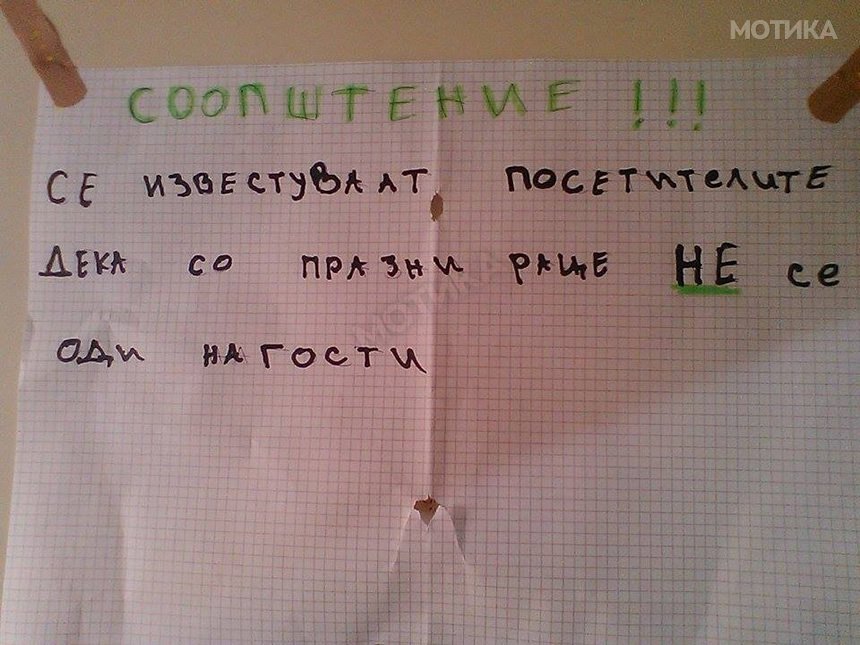 МОТИКА
СООПШТЕНИЕ !!!
СЕ ИЗВЕСТУВААТ ПОСЕТИТЕЛИТЕ
ДЕКА СО ПРАЗНИ РАЦЕ НЕ СЕ
ОДИ НА ГОСТИ
МОТИКА